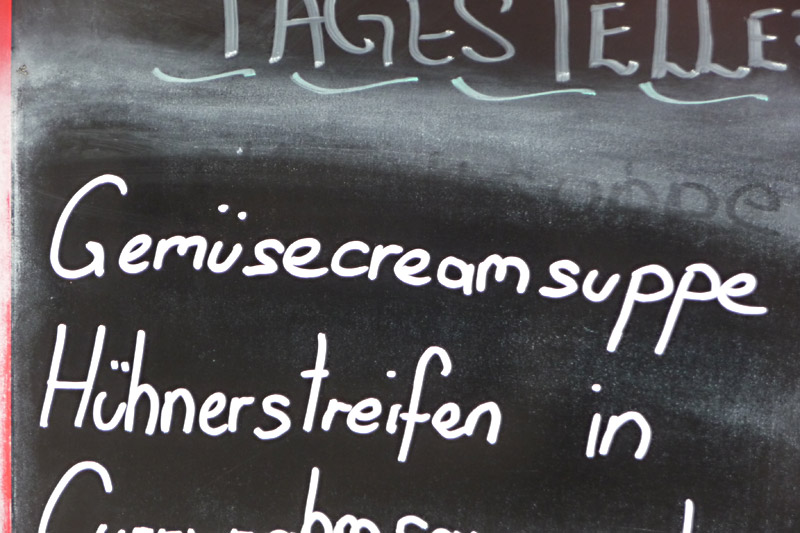 TAGESTELLE
Gemüsecreamsuppe
Hühnerstreifen in